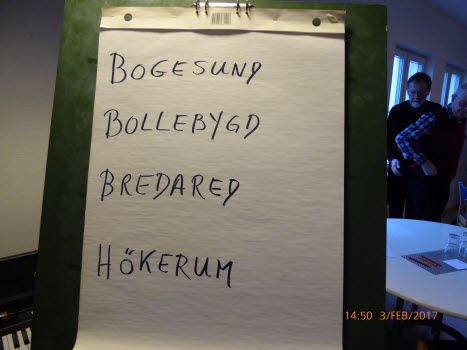 BOGESUND
BOLLEBYGD
BREDARED
HÖKERUM
14:50 3/FEB/2017